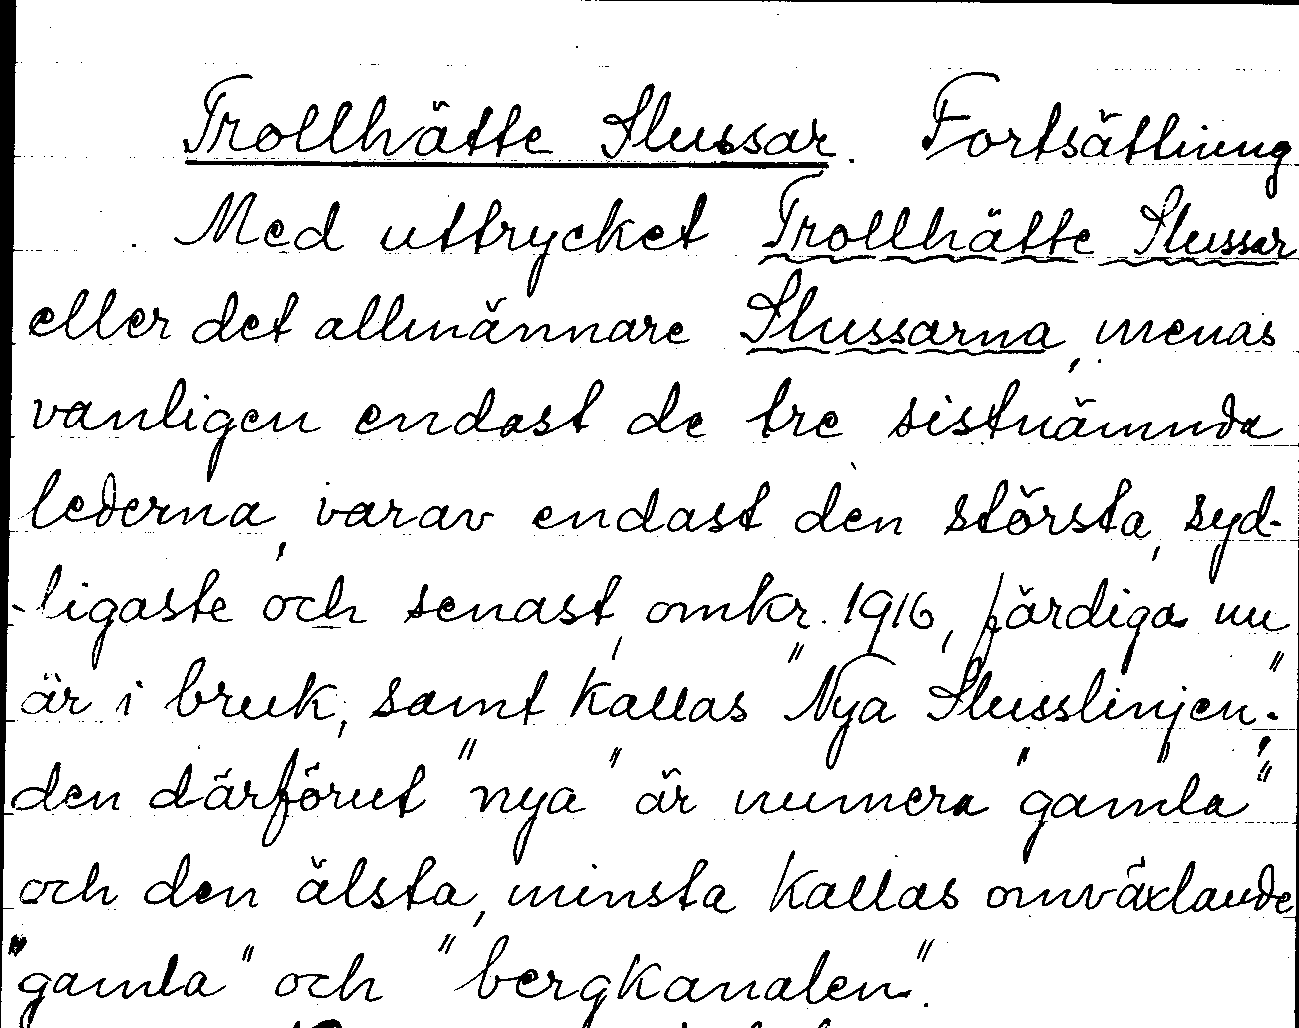 Trollhätte Slussar. Fortsättning
Med uttrycket Trollhätte Slussar
eller det allmännare Slussarna, menas
vanligen endast de tre sistnämnda
lederna, varav endast den största, syd-
-ligaste och senast, omkr. 1916, färdiga nu
är i bruk, samt kallas "Nya Slusslinjen";
den därförut "nya" är numera "gamla"
och den älsta, minsta kallas omväxlande
"gamla" och "bergkanalen".